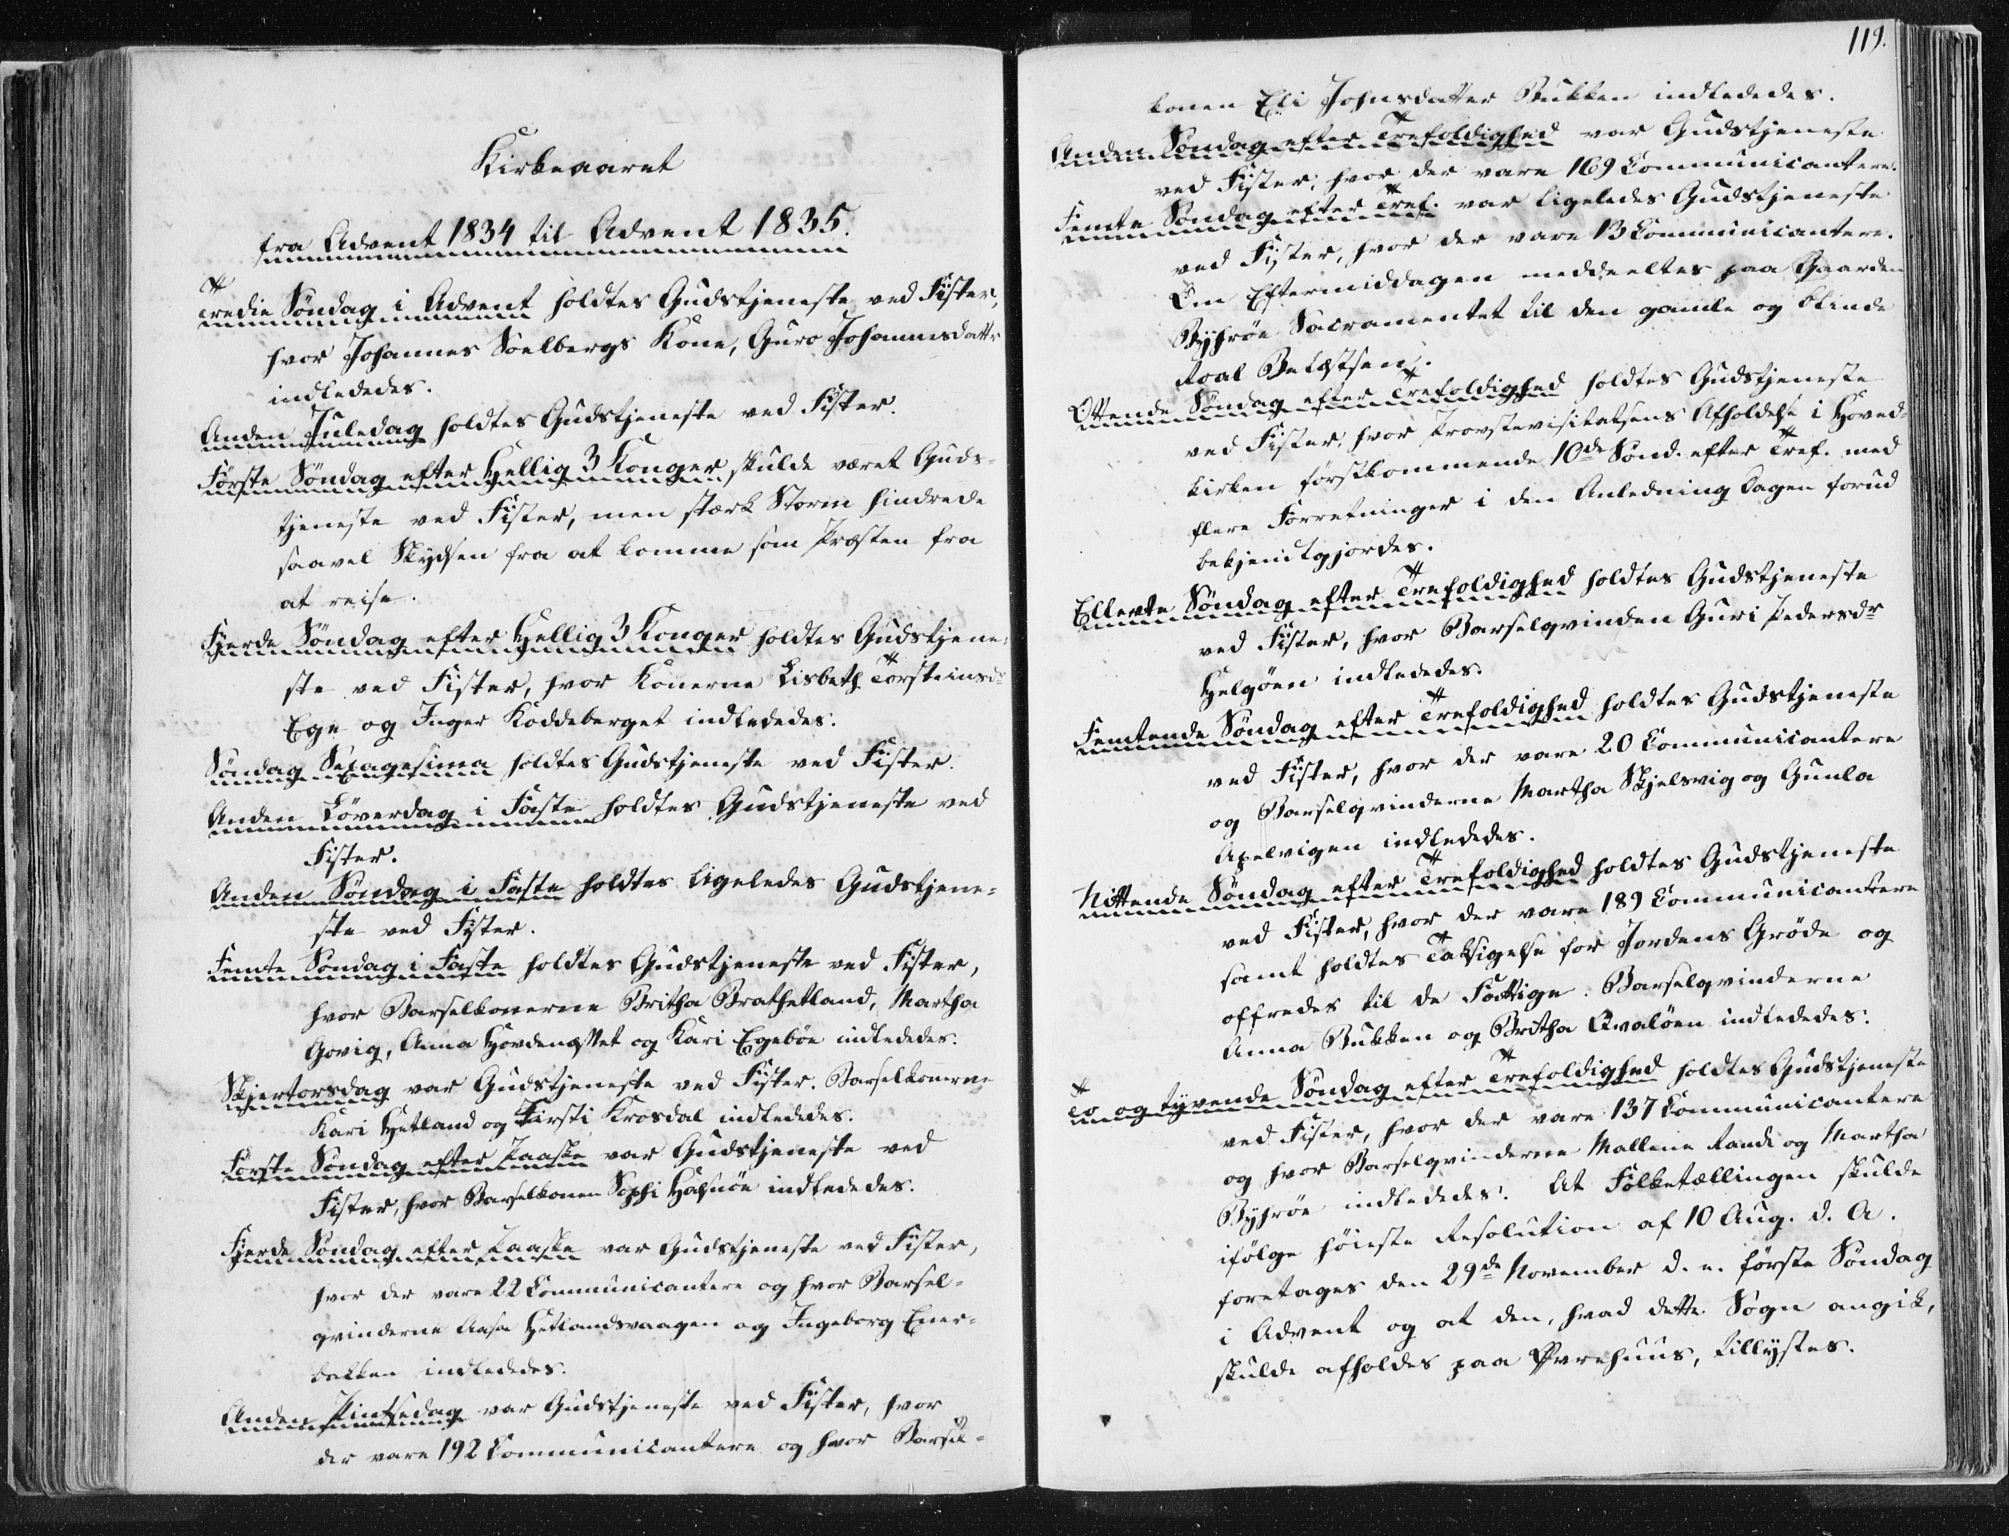 Kirkeaaret
fra Advent 1834 til Advent 1835.
Tredie Søndag i Advent holdtes Gudstjeneste ved Fister,
hvor Johannes Soelbergs Kone, Guro Johannesdattr
indlededes.
Anden Juledag holdtes Gudstjeneste ved Fister.
Første Søndag efter Hellig 3 Konger skulde været Guds-
tjeneste ved Fister, men stærk Storm hindrede
saavel Skydsen fra at komme som Præsten fra
at reise.
Fjerde Søndag efter Hellig 3 Konger holdtes Gudstjene-
ste ved Fister, hvor Konerne Lisbeth Torsteinsdr
Ege og Inger Koddeberget indlededes.
Søndag Sexagesima holdtes Gudstjeneste ved Fister.
Anden Løverdag i Faste holdtes Gudstjeneste ved
Fister.
Anden Søndag i Faste holdtes ligeledes Gudstjene-
ste ved Fister.
Femte Søndag i Faste holdtes Gudstjeneste ved Fister,
hvor Barselkonerne Britha Brathetland, Martha
Govig, Anna og Kari Egebøe indlededes.
Skjertorsdag var Gudstjeneste ved Fister. Barselkonerne
Kari Hetland og Kirsti Krosdal indlededes.
Første Søndag efter Paaske var Gudstjeneste ved
Fister, hvor Barselkonen Sophi Halsnøe indlededes.
Fjerde Søndag efter Paaske var Gudstjeneste ved Fister,
hvor der vare 22 Communicantere og hvor Barsel-
qvinderne Aasa Hetlandsvaagen og Ingeborg Ener-
bakken indlededes.
Anden Pintsedag var Gudstjeneste ved Fister, hvor
der vare 192 Communicantere og hvor Barsel-
119.
konen Eli Johnsdatter Bukken indlededes.
Anden Søndag efter Trefoldighed var Gudstjeneste
ved Fister, hvor der vare 169 Communicantere.
Femte Søndag efter Tref. var ligeledes Gudstjeneste
ved Fister, hvor der vare 13 Communicantere.
Om Eftermiddagen meddeeltes paa Gaarden
Byhrøe Sacramentet til den gamle og blinde
Roal
Ottende Søndag efter Trefoldighed holdtes Gudstjeneste
ved Fister, hvor Provstevisitatsens Afholdelse i Hoved-
kirken førstkommende 10de Sønd. efter Tref. med
flere Forretninger i den Anledning Dagen forud
bekjendtgjordes.
Ellevte Søndag efter Trefoldighed holdtes Gudstjeneste
ved Fister, hvor Barselqvinden Guri Pedersdr
Helgøen indlededes.
Femtende Søndag efter Trefoldighed holdtes Gudstjeneste
ved Fister, hvor der vare 20 Communicantere
og Barselqvinderne Martha Skjelsvig og Gunla
Apelvigen indlededes.
Nittende Søndag efter Trefoldighed holdtes Gudstjeneste
ved Fister, hvor der vare 189 Communicantere
samt holdtes Taksigelse for Jordens Grøde og
offredes til de Fattige. Barselqvinderne
Anna Bukken og Britha Qvaløen indlededes.
To og tyvende Søndag efter Trefoldighed holdtes Gudstjeneste
ved Fister, hvor der vare 137 Communicantere
og hvor Barselqvinderne Mallene Rande og Martha
Byhrøe indlededes. At Folketællingen skulde
ifølge høieste Resolution af 10 Aug. d. A.
foretages den 29de November d. e. første Søndag
i Advent og at den, hvad dette Sogn angik,
skulde afholdes paa Øvrehuus, tillystes.